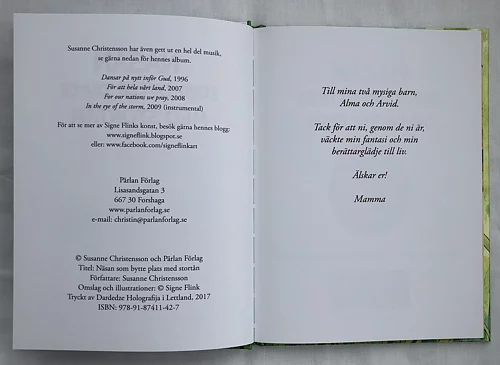 Susanne Christensson har även gett ut en hel del musik,
se gärna nedan för hennes album.
Dansar på nytt inför Gud, 1996
För att hela vårt land, 2007
For our nations we pray, 2008
In the eye of the storm, 2009 (instrumental)
För att se mer av Signe Flinks konst, besök gärna hennes blogg:
www.signeflink.blogspot.se
eller: www.facebook.com/signeflinkart
Pärlan Förlag
Lisasandsgatan 3
667 30 Forshaga
www.parlanforlag.se
e-mail: christin@parlanforlag.se
© Susanne Christensson och Pärlan Förlag
Titel: Näsan som bytte plats med stortån
Författare: Susanne Christensson
Omslag och illustrationer: © Signe Flink
Tryckt av Dardedze Holografija i Lettland, 2017
ISBN: 978-91-87411-42-7
Till mina två mysiga barn,
Alma och Arvid.
Tack för att ni, genom de ni är,
väckte min fantasi och min
berättarglädje till liv.
Älskar er!
Mamma